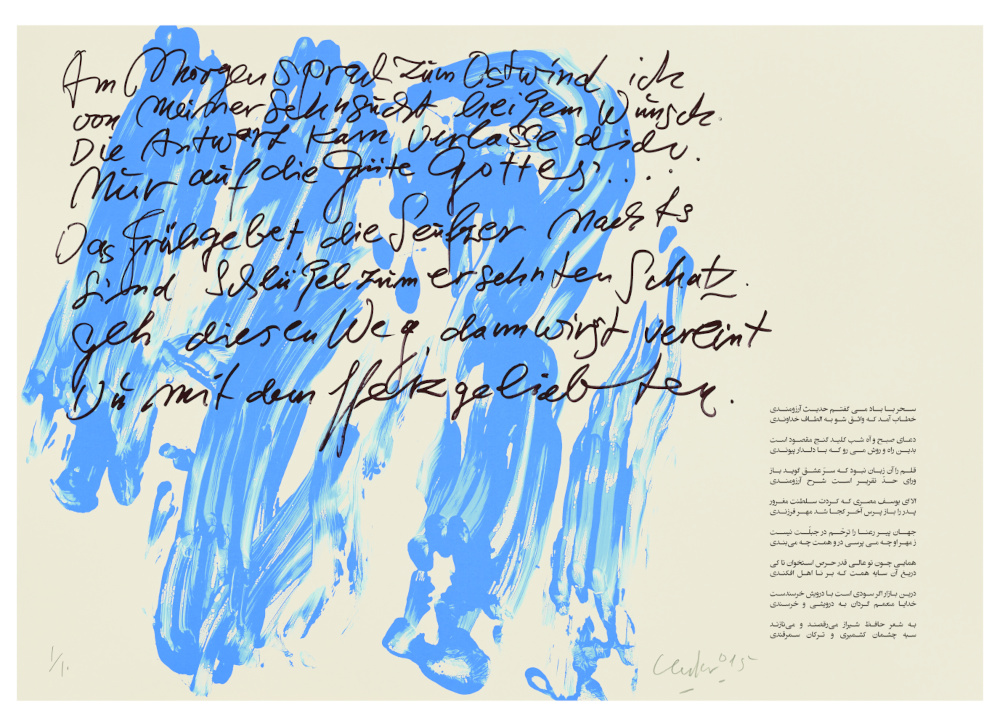 Am Morgen sprach zum Ostwind ich
von meiner Sehnsucht heißem Wunsch.
Die Antwort kam verlasse dich
Nur auf die Güte Gottes....
Das Frühgebet, die Seufzer Nachts
Sind Schlüßel zum ersehnten Schatz.
geh diesen Weg, dann wirst vereint
Du mit dem Herzgeliebten.
سحر با باد می گفتم حدیث آرزومندی
خطاب آمد که واثق شو به الطاف خداوندی
دعای صبح و آه شب کلید گنج مقصود است
بدین راه و روش می رو که با دلدار پیوندی
قلم را آن زبان نبود که سرّ عشق گوید باز
ورای حدّ تقریر است شرح آرزومندی
الا ای یوسف مصری که کردت سلطنت مغرور
پدر را باز پرس آخر کجا شد مهر فرزندی
جهان پیر رعنا را ترحّم در جبلّت نیست
ز مهر او چه می پرسی در او همت چه می بندی
همایی چون تو عالی قدر حرص استخوان تا کی
دریغ آن سایه همت که بر نا اهل افکندی
درین بازار اگر سودی است با درویش خرسندست
خدایا منعمم گردان به درویشی و خرسندی
به شعر حافظ شیراز می‌رقصند و می‌نازند
سیه چشمان کشمیری و ترکان سمرقندی
1/1.
15